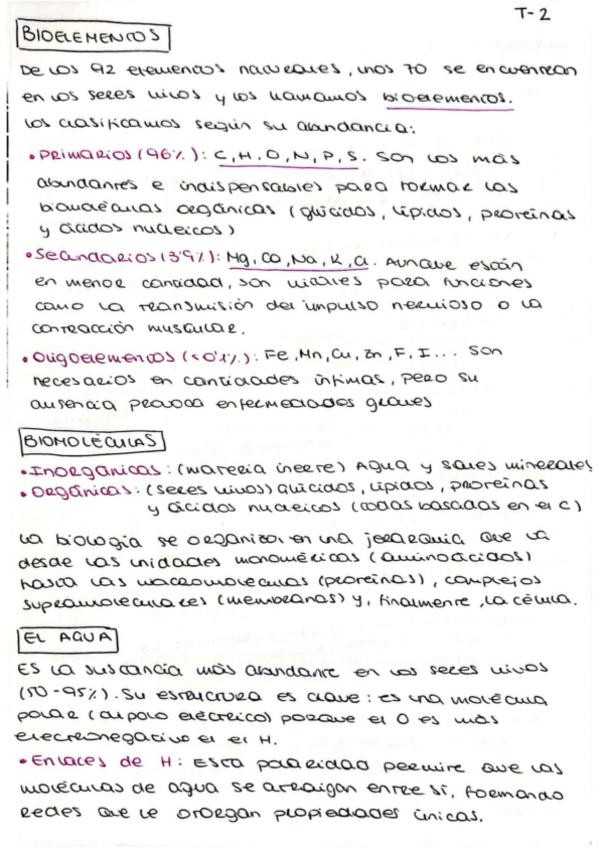 T-2
BIOELEMENTOS
De los 92 elementos naturales, unos 70 se encuentran
en los seres vivos y los llamamos bioelementos.
Los clasificamos según su abundancia:
• Primarios (96%): C, H, O, N, P, S. Son los más
abundantes e indispensables para formar las
biomoléculas orgánicas (glúcidos, lípidos, proteínas
y ácidos nucleicos)
• Secundarios (3'9%): Mg, Ca, Na, K, Cl. Aunque están
en menor cantidad, son vitales para funciones
como la transmisión del impulso nervioso o la
contracción muscular.
• Oligoelementos (<0'1%): Fe, Mn, Cu, Zn, F, I... Son
necesarios en cantidades ínfimas, pero su
ausencia provoca enfermedades graves
BIOMOLÉCULAS
• Inorgánicas: (materia inerte) Agua y sales minerales
• Orgánicas: (seres vivos) glúcidos, lípidos, proteínas
y ácidos nucleicos (todas basadas en el C)
La biología se organiza en una jerarquía que va
desde las unidades monoméricas (aminoácidos)
hasta las macromoléculas (proteínas), complejos
supramoleculares (membranas) y, finalmente, la célula.
EL AGUA
Es la sustancia más abundante en los seres vivos
(50-95%). Su estructura es clave: es una molécula
polar (dipolo eléctrico) porque el O es más
electronegativo el el H.
• Enlaces de H: Esta polaridad permite que las
moléculas de agua se atraigan entre sí, formando
redes que le otorgan propiedades únicas.